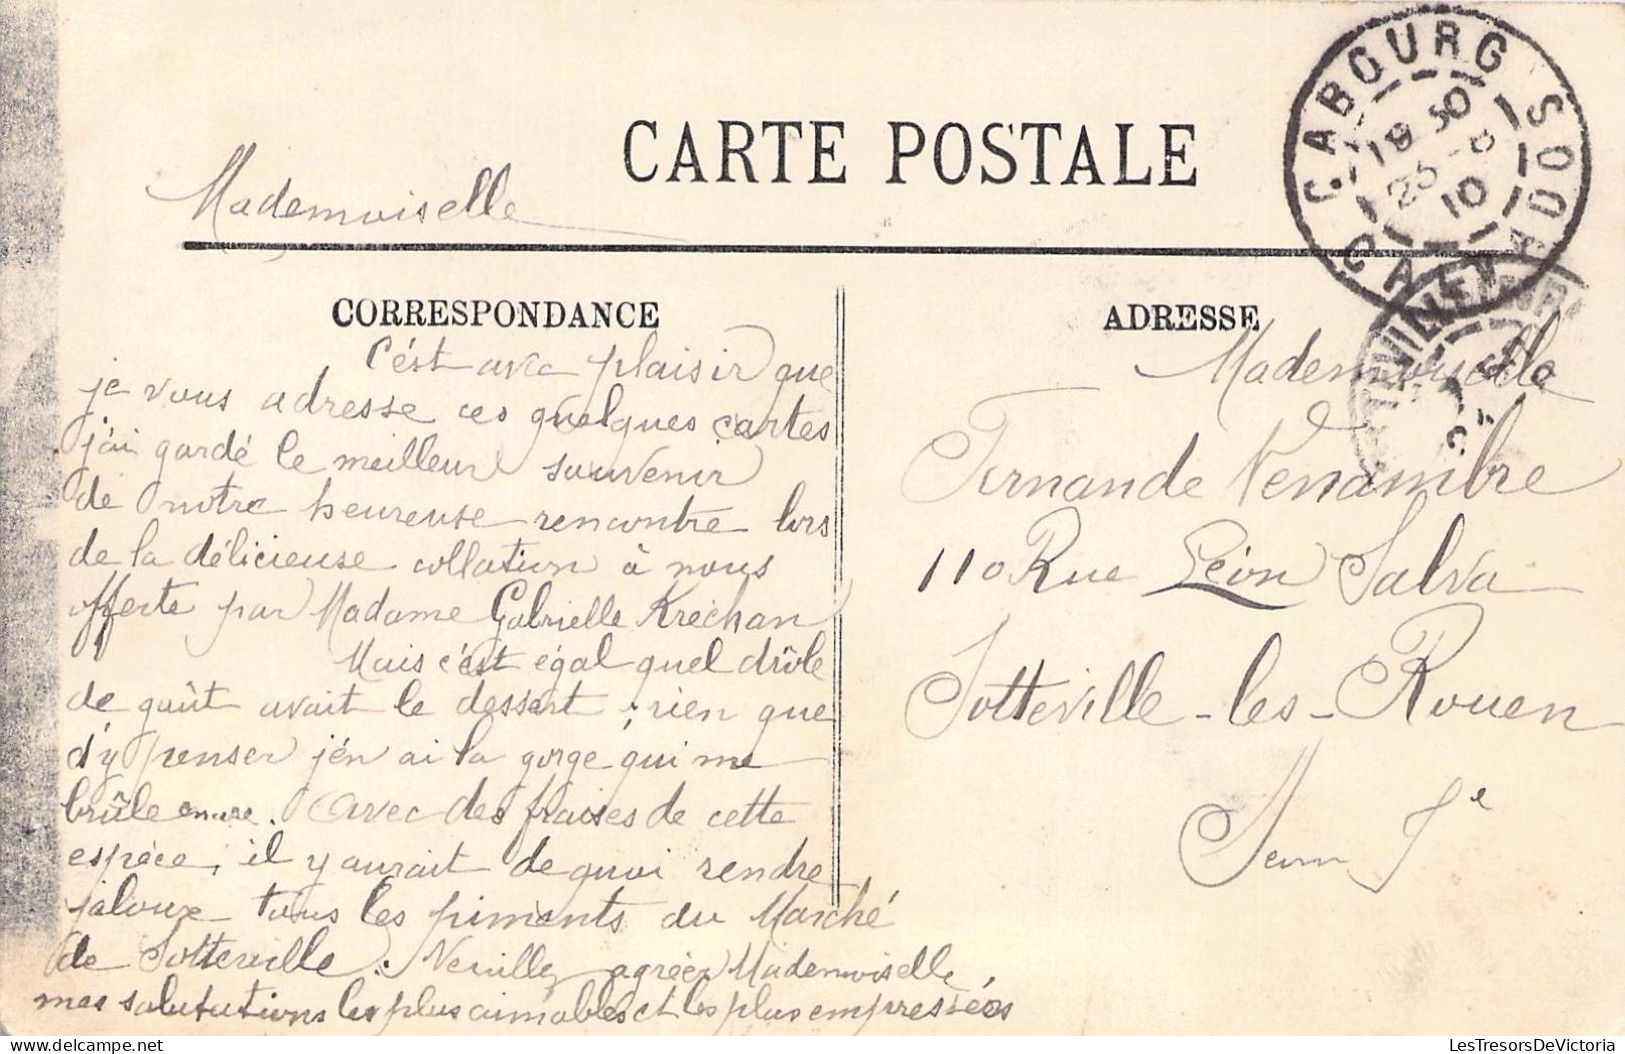 CABOURG
CAEN
18 30
10
CARTE POSTALE
Mademoiselle
CORRESPONDANCE
C'est avec plaisir que
je vous adresse ces quelques cartes
j'ai gardé le meilleur souvenir
de notre heureuse rencontre lors
de la délicieuse collation à nous
offerte par Madame Gabrielle Kréchan
Mais c'est égal quel drôle
de goût avait le dessert ; rien que
d'y penser j'en ai la gorge qui me
brûle encore. Avec des fraises de cette
espèce, il y aurait de quoi rendre
jaloux tous les piments du Marché
de Sotteville. Veuillez agréer Mademoiselle,
mes salutations les plus aimables et les plus empressées
ADRESSE
Mademoiselle
Fernande Venambre
110 Rue Léon Salva
Sotteville-les-Rouen
Seine Ire
LesTresorsDeVictoria
www.delcampe.net